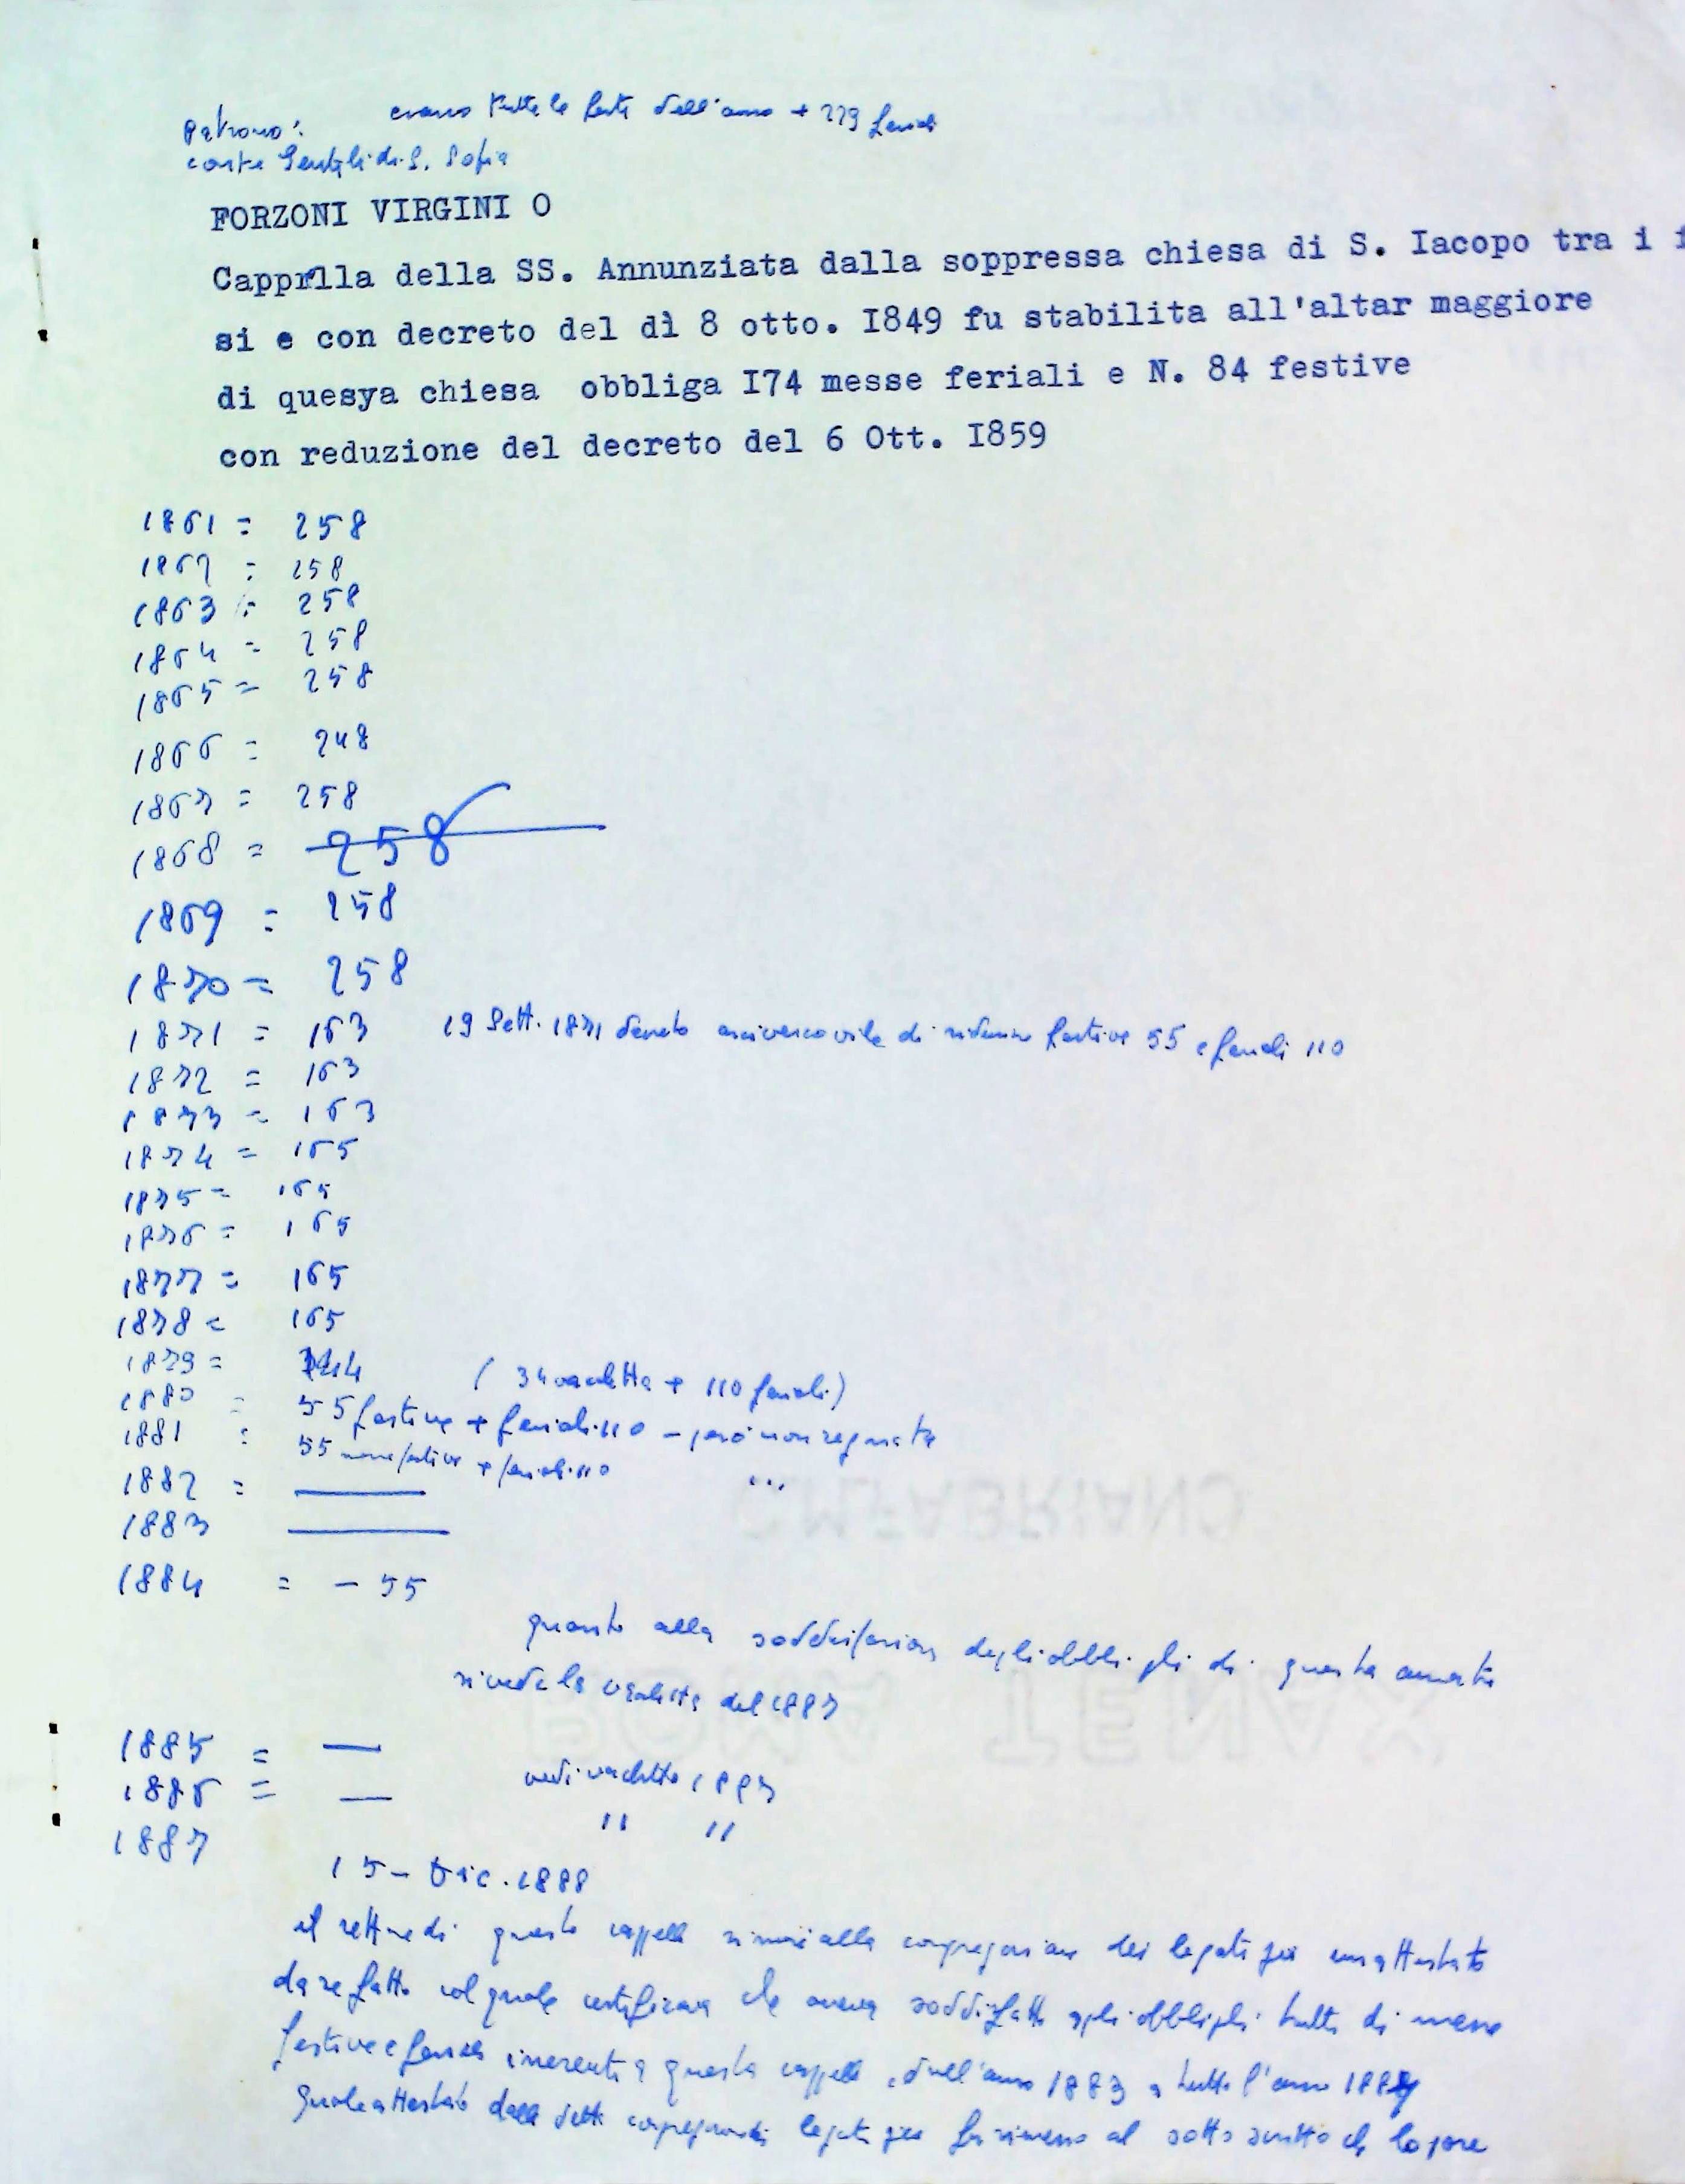 erano tutte le feste dell'anno + 229 feriali
patrono:
conte Gentili di S. Sofia
FORZONI VIRGINI O
Capprlla della SS. Annunziata dalla soppressa chiesa di S. Iacopo tra i f
si e con decreto del dì 8 otto. I849 fu stabilita all'altar maggiore
di quesya chiesa obbliga I74 messe feriali e N. 84 festive
con reduzione del decreto del 6 Ott. I859
1861 = 258
1862 = 258
1863 = 258
1864 = 258
1865 = 258
1866 = 248
1867 = 258
1868 = 258
1869 = 258
1870 = 258
1871 = 163 19 Sett. 1871 decreto arcivescovile di riduzione festive 55 e feriali 110
1872 = 163
1873 = 163
1874 = 165
1875 = 165
1876 = 165
1877 = 165
1878 = 165
1879 = 144 ( 34 vacchetta + 110 feriali)
1880 = 55 festive + feriali 110 - però non segnate
1881 = 55 messe festive + feriali 110 ...
1882 =
1883
1884 = - 55
quanto alla soddisfazione degli obblighi di questa annata
si veda la vacchetta del 1887
1885 = —
1886 = — vedi vacchetta 1887
1887 " "
15 - Dic. 1888
il rettore di questa cappella rimise alla congregazione dei legati pii un attestato
da se fatto col quale certificava che aveva soddisfatto agli obblighi tutti di messe
festive e feriali inerenti a questa cappella, dall'anno 1883 a tutto l'anno 1887
quale attestato dalla detta congregazione legati pii fu rimesso al sotto scritto che lo pose